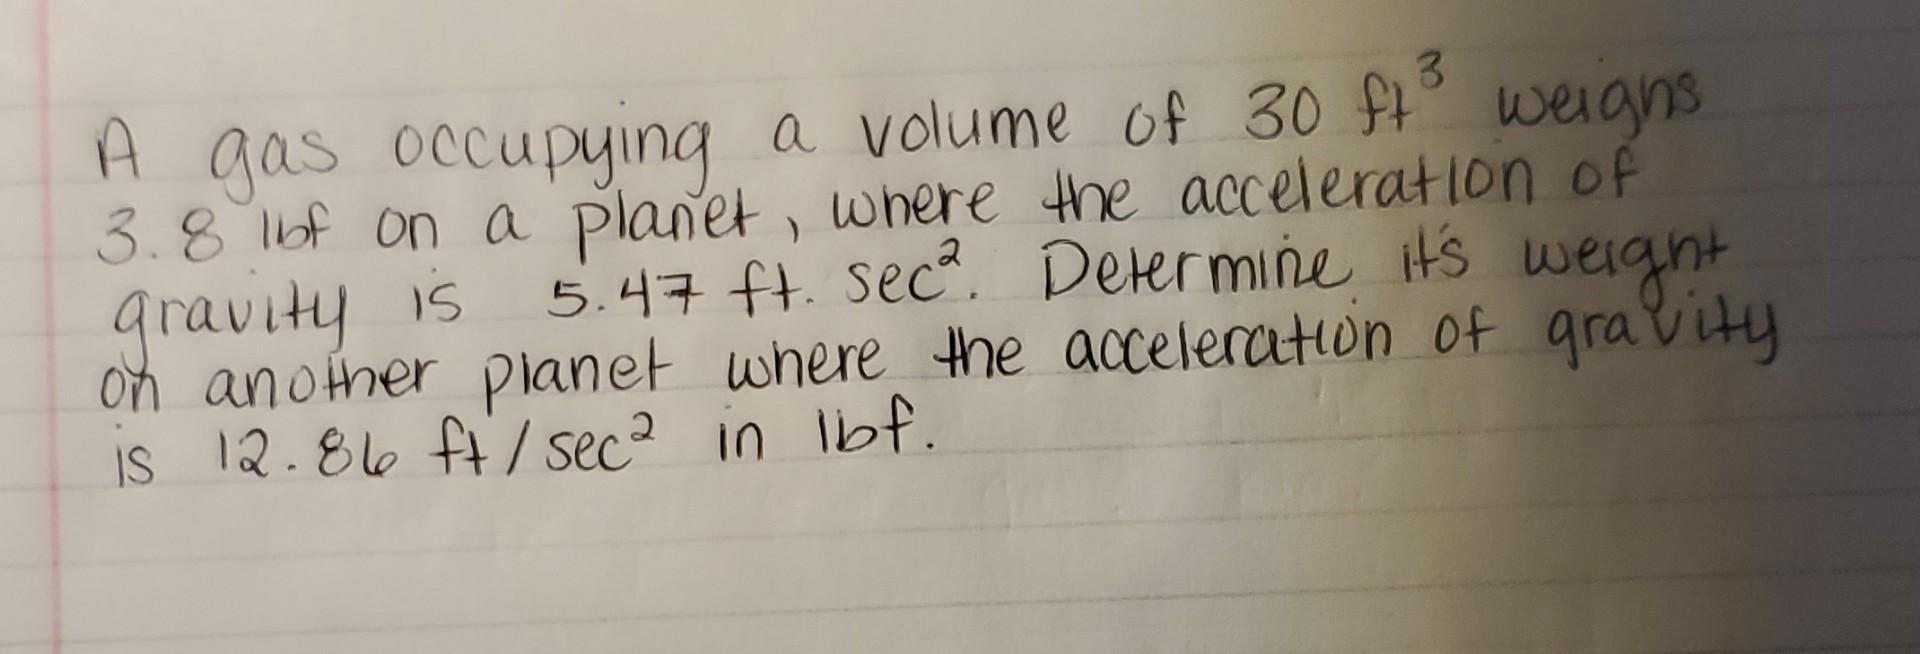 A gas occupying a volume of 30 ft³ weighs
3.8 lbf on a planet, where the acceleration of
gravity is 5.47 ft. sec². Determine it's weight
on another planet where the acceleration of gravity
is 12.86 ft/sec² in lbf.